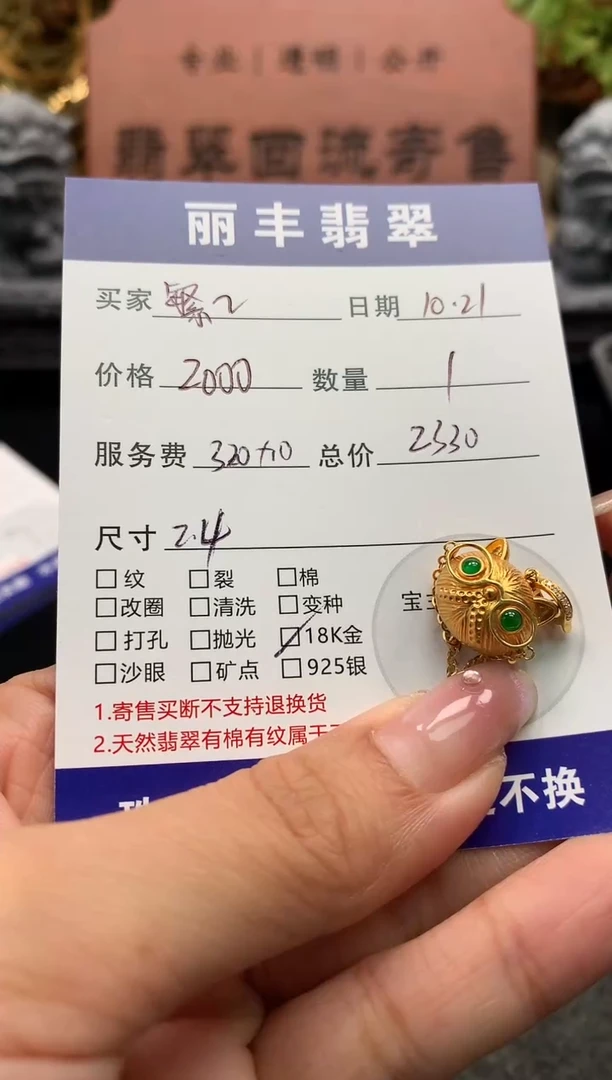 专业 | 透明 | 公开
翡翠回流寄售
丽丰翡翠
买家 日期 10.21
价格 2000 数量 1
服务费 320+10 总价 2330
尺寸 2.4
□纹 □裂 □棉
□改圈 □清洗 □变种
□打孔 □抛光 ☑18K金
□沙眼 □矿点 □925银
1.寄售买断不支持退换货
2.天然翡翠有棉有纹属于
不换